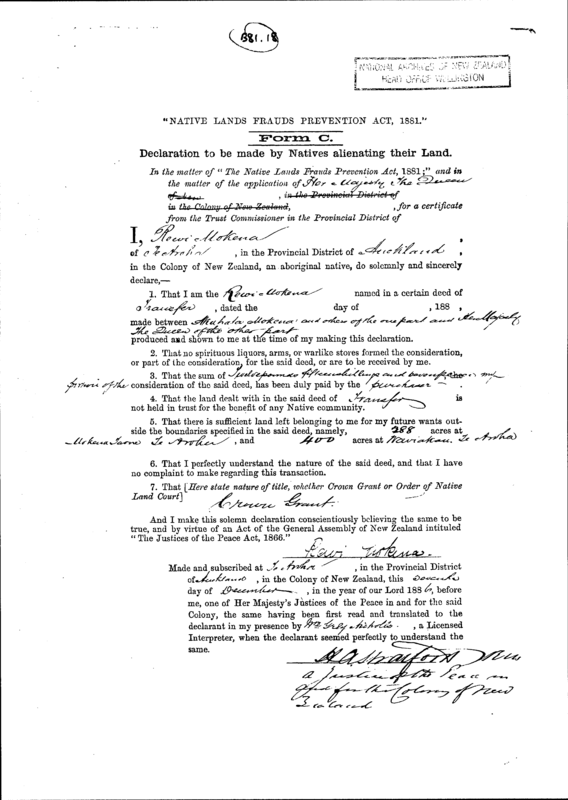 BB1.18
NATIONAL ARCHIVES OF NEW ZEALAND
HEAD OFFICE WELLINGTON
"NATIVE LANDS FRAUDS PREVENTION ACT, 1881."
Form C.
Declaration to be made by Natives alienating their Land.
In the matter of "The Native Lands Frauds Prevention Act, 1881;" and in
the matter of the application of Her Majesty The Queen
, in the Provincial District of
in the Colony of New Zealand, , for a certificate
from the Trust Commissioner in the Provincial District of
I, Rewi Mokena ,
of Te Aroha , in the Provincial District of Auckland ,
in the Colony of New Zealand, an aboriginal native, do solemnly and sincerely
declare,—
1. That I am the Rewi Mokena named in a certain deed of
Transfer , dated the day of , 188 ,
made between Mokena and others of the one part and Her Majesty
The Queen of the other part
produced and shown to me at the time of my making this declaration.
2. That no spirituous liquors, arms, or warlike stores formed the consideration,
or part of the consideration, for the said deed, or are to be received by me.
3. That the sum of shillings and my
of the consideration of the said deed, has been duly paid by the purchaser
4. That the land dealt with in the said deed of Transfer is
not held in trust for the benefit of any Native community.
5. That there is sufficient land left belonging to me for my future wants out-
side the boundaries specified in the said deed, namely, 288 acres at
Te Aroha , and 400 acres at Te Aroha
6. That I perfectly understand the nature of the said deed, and that I have
no complaint to make regarding this transaction.
7. That [Here state nature of title, whether Crown Grant or Order of Native
Land Court] Crown Grant.
And I make this solemn declaration conscientiously believing the same to be
true, and by virtue of an Act of the General Assembly of New Zealand intituled
"The Justices of the Peace Act, 1866."
Rewi Mokena.
Made and subscribed at Te Aroha , in the Provincial District
of Auckland , in the Colony of New Zealand, this
day of December , in the year of our Lord 188 , before
me, one of Her Majesty's Justices of the Peace in and for the said
Colony, the same having been first read and translated to the
declarant in my presence by Grey Nicholls , a Licensed
Interpreter, when the declarant seemed perfectly to understand the
same.
H A Stratford
a Justice of the Peace in
and for the Colony of New
Zealand